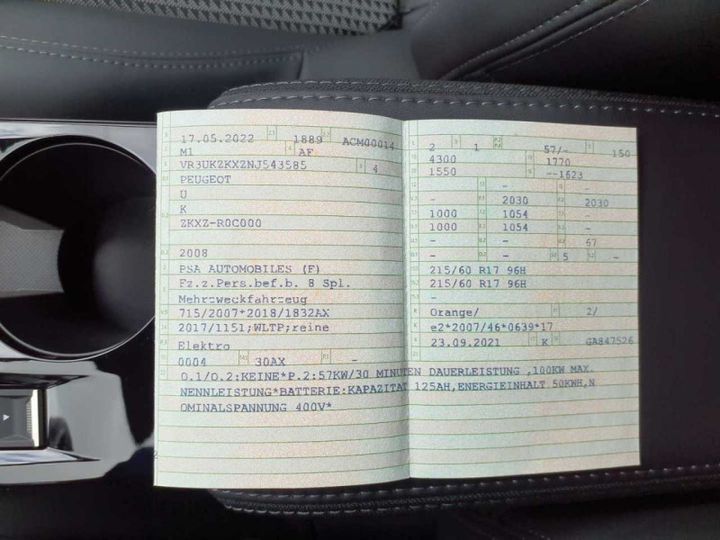 17.05.2022 1889 ACM00014
M1 AF
VR3UKZKXZNJ543585 4
PEUGEOT
U
K
ZKXZ-R0C000
2008
PSA AUTOMOBILES (F)
Fz.z.Pers.bef.b. 8 Spl.
Mehrzweckfahrzeug
715/2007*2018/1832AX
2017/1151;WLTP;reine
Elektro
0004 30AX -
2 1 57/- 150
4300 1770
1550 --1623
- -
- 2030 2030
1000 1054 -
1000 1054 -
- - 67
- - 5 -
215/60 R17 96H
215/60 R17 96H
-
Orange/ 2/
e2*2007/46*0639*17
23.09.2021 K GA847526
O.1/O.2:KEINE*P.2:57KW/30 MINUTEN DAUERLEISTUNG ,100KW MAX.
NENNLEISTUNG*BATTERIE:KAPAZITAT 125AH,ENERGIEINHALT 50KWH,N
OMINALSPANNUNG 400V*